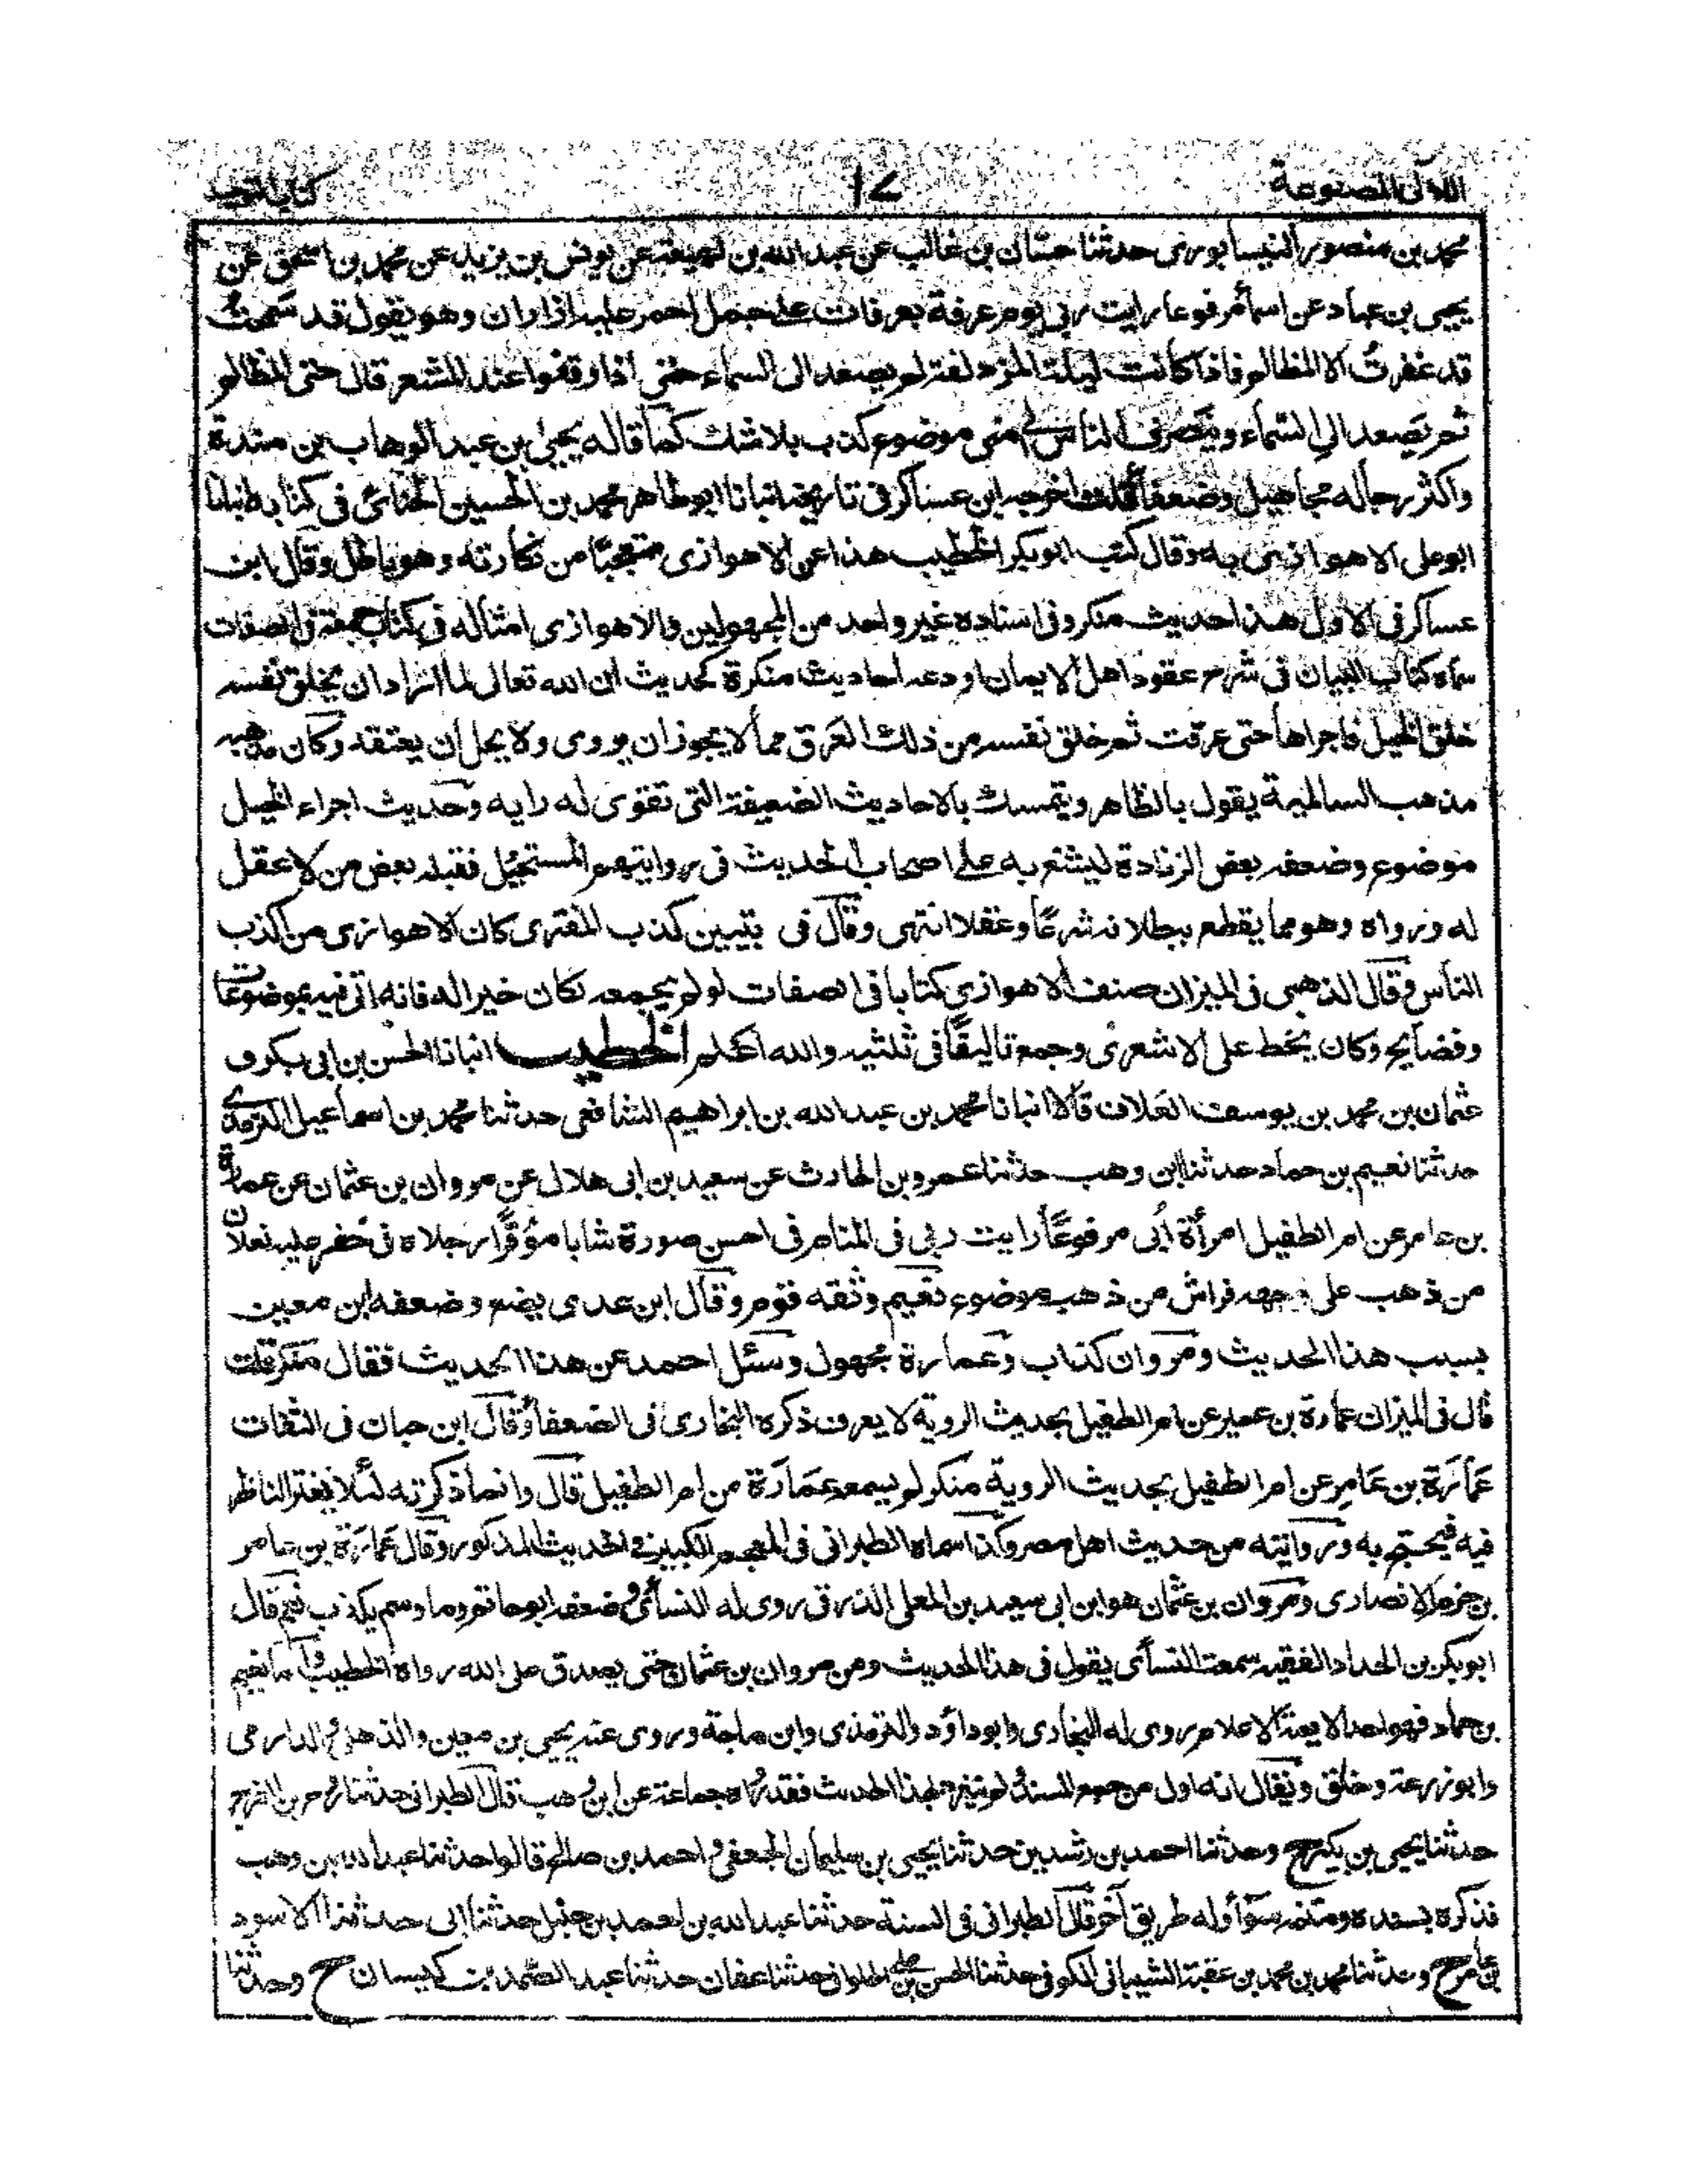 اللآلى المصنوعة ١٧ كتاب التوحيد
محمد بن منصور النيسابورى حدثنا حسّان بن غالب عن عبد الله بن لهيعة عن يونس بن يزيد عن محمد بن اسحٰق عن
يحيى بن عباد عن اسمأ مرفوعا رايت ربى يوم عرفة بعرفات على جمل احمر عليه ازاران وهو يقول قد سمحتُ
قد غفرتُ الا المظالم فاذا كانت ليلة المزدلفة لم يصعد الى السماء حتى اذا وقفوا عند المشعر قال حتى المظالم
ثم يصعد الى السماء وينصرف الناس الى منى موضوع كذب بلا شك كما قاله يحيىٰ بن عبد الوهاب بن مندة
واكثر رجاله مجاهيل وضعفأ قلت واخرجه ابن عساكر فى تاريخه انبانا ابو طاهر محمد بن الحسين الحنائى فى كتابه انبانا
ابو على الاهوازى به وقال كتب ابو بكر الخطيب هذا عن الاهوازى متعجبًا من نكارته وهو باطل وقال ابن
عساكر فى الاول هذا حديث منكر وفى اسناده غير واحد من المجهولين وللاهوازى امثاله فى كتاب جمعه فى الصفات
سماه كتاب البيان فى شرح عقود اهل الايمان اودعه احاديث منكرة كحديث ان الله تعالى لما اراد ان يخلق نفسه
خلق الخيل فاجراها حتى عرقت ثم خلق نفسه من ذلك العَرق مما لا يجوز ان يروى ولا يحل ان يعتقد وكان مذهبه
مذهب السالمية يقول بالظاهر ويتمسك بالاحاديث الضعيفة التى تقوى له رايه وحديث اجراء الخيل
موضوع وضعه بعض الزنادقة ليشنع به على اصحاب الحديث فى روايتهم المستحيل فقبله بعض من لا عقل
له ورواه وهو مما يقطع ببطلانه شرعًا وعقلا انتهى وقال فى تبيين كذب المفترى كان الاهوازى من اكذب
الناس وقال الذهبى فى الميزان صنف الاهوازى كتابا فى الصفات لو لم يجمعه لكان خيرا له فانه اتى فيه بموضوعات
وفضايح وكان يحط على الاشعرى وجمع تاليفًا فى ثلثيه والله اعلم الخطيب انبانا الحسن بن ابى بكر و
عثمان بن محمد بن يوسف العلاف قالا انبانا محمد بن عبد الله بن ابراهيم الشافعى حدثنا محمد بن اسماعيل الترمذى
حدثنا نعيم بن حماد حدثنا ابن وهب حدثنا عمرو بن الحارث عن سعيد بن ابى هلال عن مروان بن عثمان عن عمارة
بن عامر عن ام الطفيل امرأة أبى مرفوعًا رايت ربى فى المنام فى احسن صورة شابا موُقرًا رجلاه فى خضر عليه نعلان
من ذهب على وجهه فراش من ذهب موضوع نعيم وثقه قوم وقال ابن عدى يضع وضعفه ابن معين
بسبب هذا الحديث ومروان كذاب وعمارة مجهول وسئل احمد عن هذا الحديث فقال منكر قلت
قال فى الميزان عمارة بن عمير عن ام الطفيل بحديث الروية لا يعرف ذكره البخارى فى الضعفأ وقال ابن حبان فى الثقات
عمَارة بن عَامِر عن ام الطفيل بحديث الروية منكر لم يسمع عمَارَة من ام الطفيل قال وانما ذكرته لئلا يغتر الناظر
فيه فيحتج به وروايته من حديث اهل مصر وكذا سماه الطبرانى فى المعجم الكبير فى الحديث المذكور وقال عمَارة بن عامر
بن حزم الانصارى ومروان بن عثمان هو ابن ابى سعيد بن المعلى الزرقى روى له النسأى وضعفه ابو حاتم وما وسم بكذب نعم قال
ابو بكر بن الحداد الفقيه سمعت النسأى يقول فى هذا الحديث ومن مروان بن عثمان حتى يصدق على الله رواه الخطيب واما نعيم
بن حماد فهو احد الايمة الاعلام روى له البخارى وابو داؤد والترمذى وابن ماجة وروى عنه يحيى بن معين والذهلى والدارمى
وابو زرعة وخلق ويقال انه اول من جمع المسند لم ينفرد بهذا الحديث فقد رواه جماعة عن ابن وهب قال الطبرانى حدثنا روح بن الفرج
حدثنا يحيى بن بكير ح وحدثنا احمد بن رشدين حدثنا يحيى بن سليمان الجعفى واحمد بن صالح قالوا حدثنا عبد الله بن وهب
فذكره بسنده ومتنه سوأ وله طريق آخر قال الطبرانى فى السنة حدثنا عبد الله بن احمد بن حنبل حدثنا ابى حدثنا الاسود
بن عامر ح وحدثنا محمد بن محمد بن عقبة الشيبانى الكوفى حدثنا الحسن بن على الحلوانى حدثنا عفان حدثنا عبد الصّمد بن كيسان ح وحدثنا